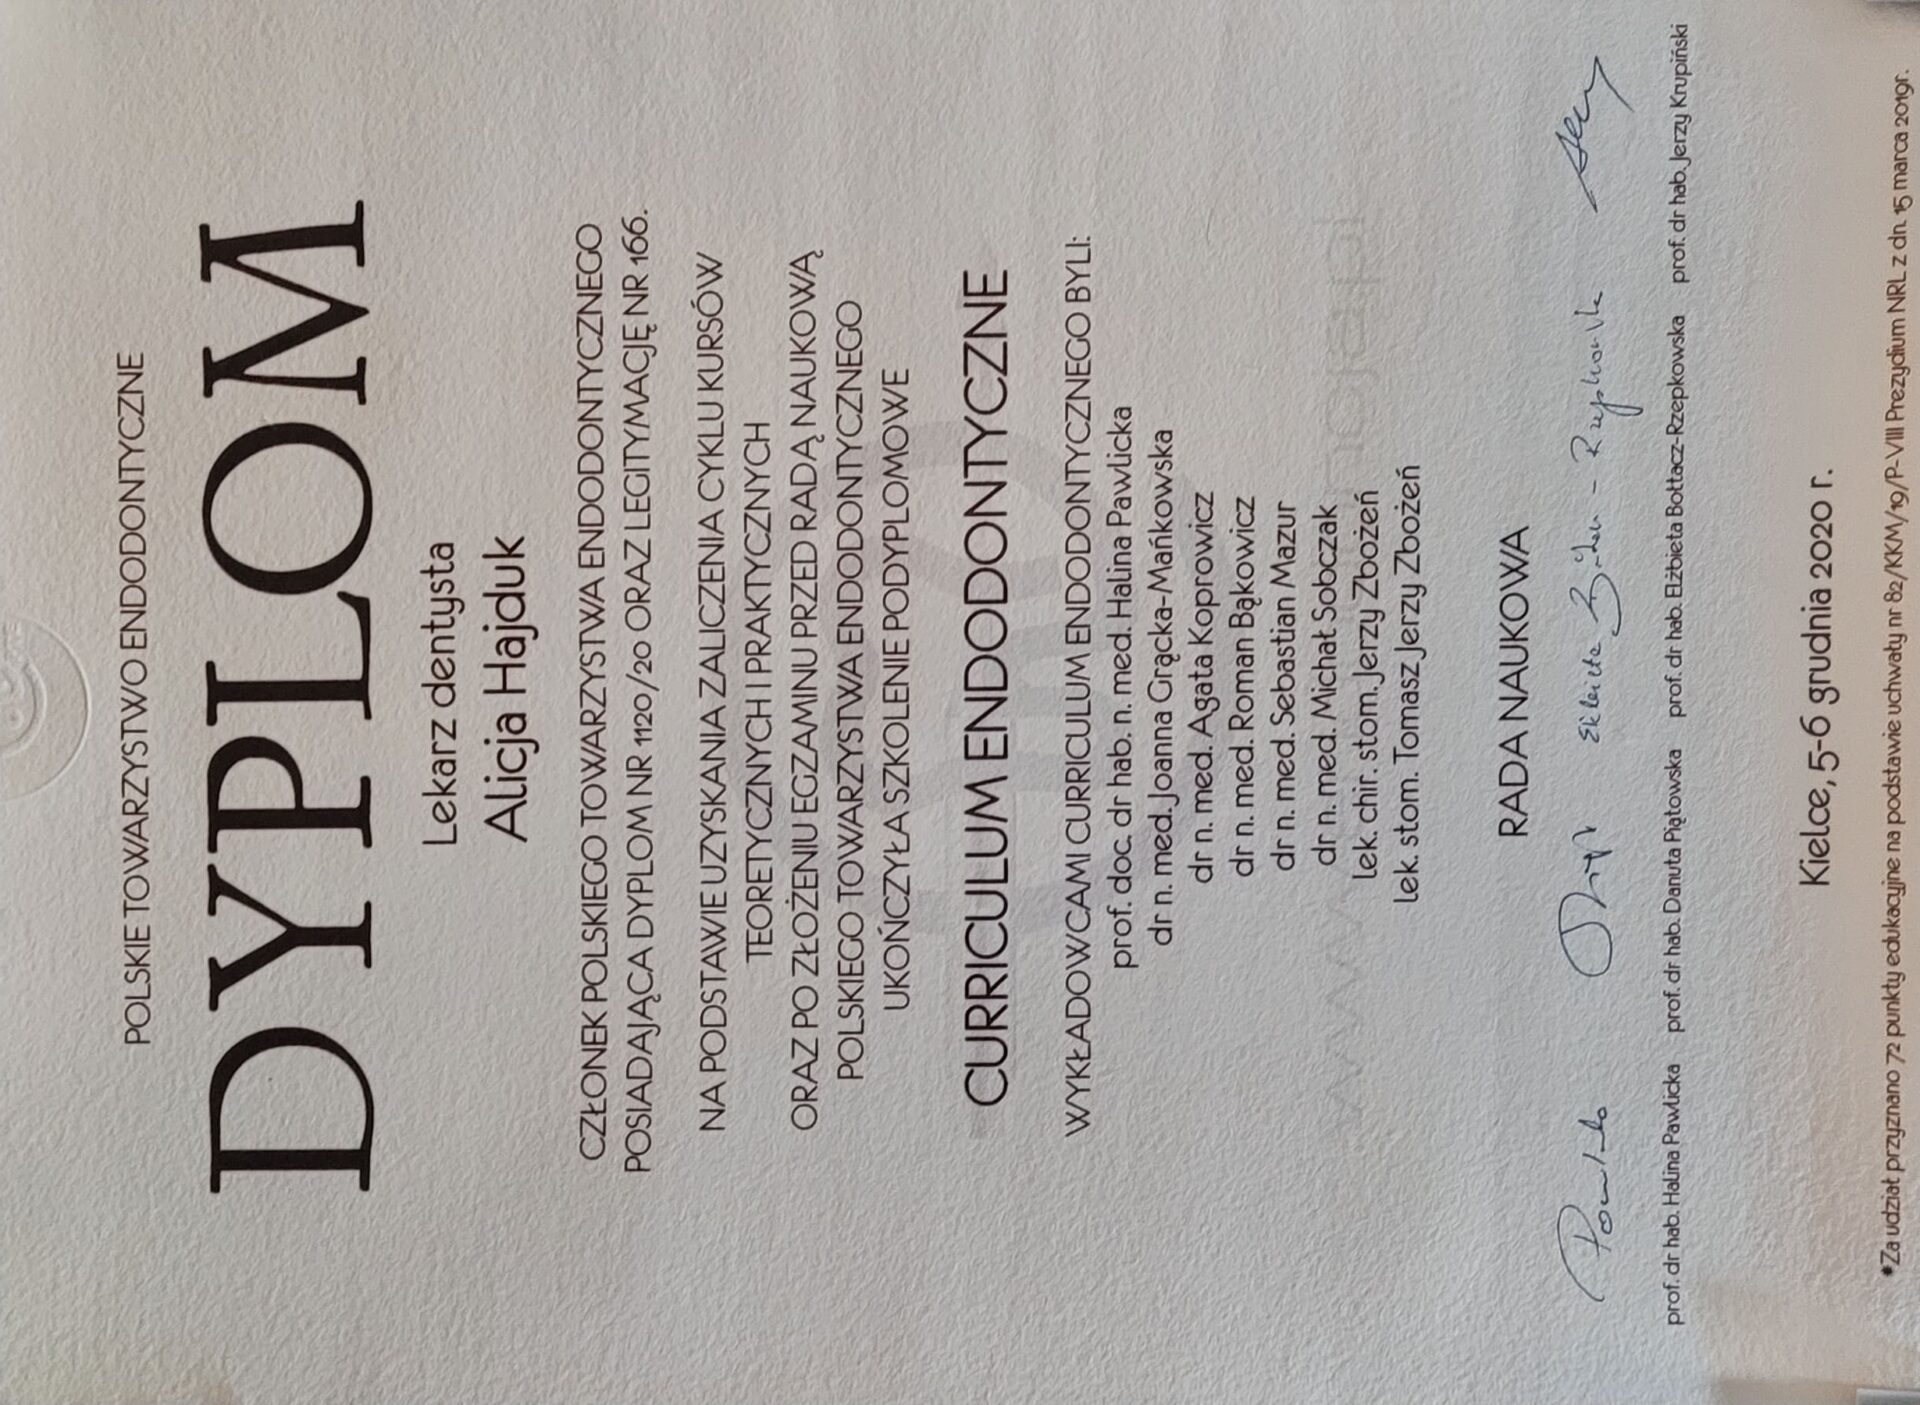 POLSKIE TOWARZYSTWO ENDODONTYCZNE
DYPLOM
Lekarz dentysta
Alicja Hajduk
CZŁONEK POLSKIEGO TOWARZYSTWA ENDODONTYCZNEGO
POSIADAJĄCA DYPLOM NR 1120/20 ORAZ LEGITYMACJĘ NR 166.
NA PODSTAWIE UZYSKANIA ZALICZENIA CYKLU KURSÓW
TEORETYCZNYCH I PRAKTYCZNYCH
ORAZ PO ZŁOŻENIU EGZAMINU PRZED RADĄ NAUKOWĄ
POLSKIEGO TOWARZYSTWA ENDODONTYCZNEGO
UKOŃCZYŁA SZKOLENIE PODYPLOMOWE
CURRICULUM ENDODONTYCZNE
WYKŁADOWCAMI CURRICULUM ENDODONTYCZNEGO BYLI:
prof. doc. dr hab. n. med. Halina Pawlicka
dr n. med. Joanna Grącka-Mańkowska
dr n. med. Agata Koprowicz
dr n. med. Roman Bąkowicz
dr n. med. Sebastian Mazur
dr n. med. Michał Sobczak
lek. chir. stom. Jerzy Zbożeń
lek. stom. Tomasz Jerzy Zbożeń
RADA NAUKOWA
prof. dr hab. Halina Pawlicka prof. dr hab. Danuta Piątowska prof. dr hab. Elżbieta Bołtacz-Rzepkowska prof. dr hab. Jerzy Krupiński
Kielce, 5-6 grudnia 2020 r.
*Za udział przyznano 72 punkty edukacyjne na podstawie uchwały nr 82/KKM/19/P-VIII Prezydium NRL z dn. 15 marca 2019r.